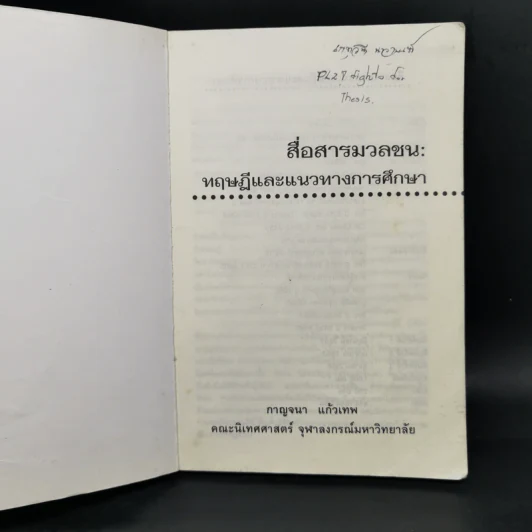 Thesis.
สื่อสารมวลชน:
ทฤษฎีและแนวทางการศึกษา
กาญจนา แก้วเทพ
คณะนิเทศศาสตร์ จุฬาลงกรณ์มหาวิทยาลัย